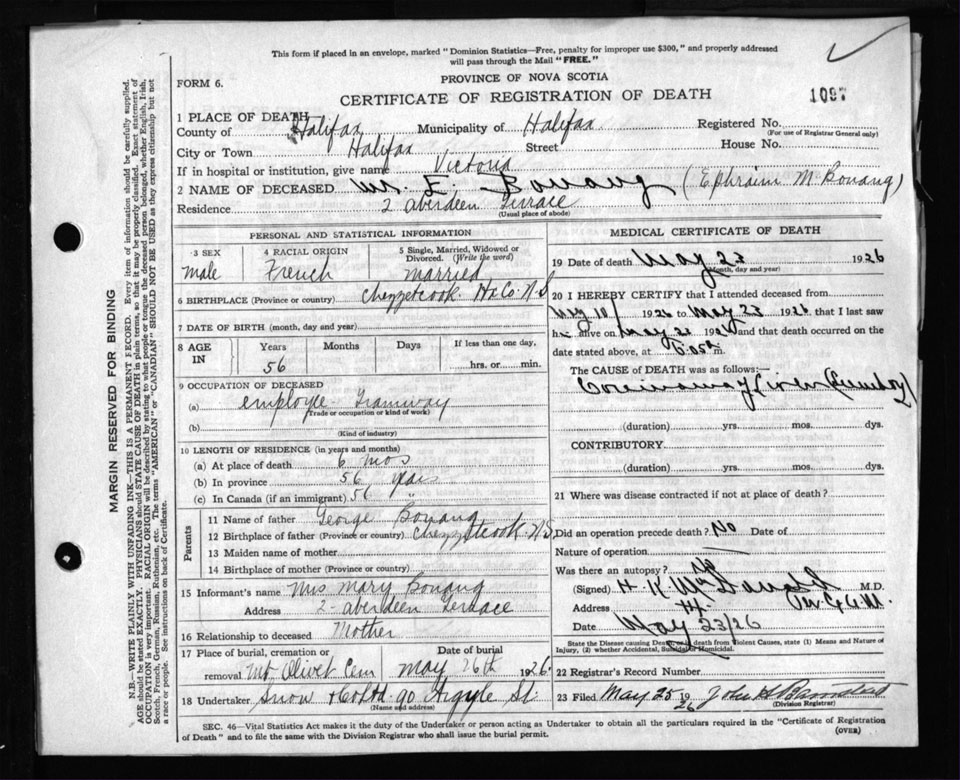 This form if placed in an envelope, marked "Dominion Statistics—Free, penalty for improper use $300," and properly addressed
will pass through the Mail "FREE."
FORM 6.
PROVINCE OF NOVA SCOTIA
CERTIFICATE OF REGISTRATION OF DEATH
1097
1 PLACE OF DEATH
County of Halifax Municipality of Halifax Registered No.
(For use of Registrar General only)
City or Town Halifax Street House No.
If in hospital or institution, give name Victoria
2 NAME OF DECEASED Mr. E. Bonang (Ephraim M Bonang)
Residence 2 aberdeen Terrace
(Usual place of abode)
PERSONAL AND STATISTICAL INFORMATION
3 SEX
male
4 RACIAL ORIGIN
French
5 Single, Married, Widowed or
Divorced. (Write the word)
married
6 BIRTHPLACE (Province or country) Chezzetcook Hx Co. N.S
7 DATE OF BIRTH (month, day and year)
8 AGE IN
Years Months Days If less than one day,
56 hrs. or min.
9 OCCUPATION OF DECEASED
(a) employee Tramway
(Trade or occupation or kind of work)
(b)
(Kind of industry)
10 LENGTH OF RESIDENCE (in years and months)
(a) At place of death 6 mos
(b) In province 56 years
(c) In Canada (if an immigrant) 56
Parents
11 Name of father George Bonang
12 Birthplace of father (Province or country) Chezzetcook N.S.
13 Maiden name of mother
14 Birthplace of mother (Province or country)
15 Informant's name Mrs Mary Bonang
Address 2 aberdeen Terrace
16 Relationship to deceased Mother
17 Place of burial, cremation or Date of burial
removal Mt Olivet Cem May 26th 1926
18 Undertaker Snow & Co Ltd 90 Argyle St.
(Name and address)
MEDICAL CERTIFICATE OF DEATH
19 Date of death May 23 1926
(Month, day and year)
20 I HEREBY CERTIFY that I attended deceased from
May 10/ 1926 to May 23 1926 that I last saw
h alive on May 23 1926 and that death occurred on
date stated above, at m.
The CAUSE of DEATH was as follows:—
(duration) yrs. mos. dys.
CONTRIBUTORY
(duration) yrs. mos. dys.
21 Where was disease contracted if not at place of death?
Did an operation precede death? No Date of
Nature of operation
Was there an autopsy? No
(Signed) H. K. M.D.
Address
Date May 23/26
State the Disease causing Death, or in death from Violent Causes, state (1) Means and Nature of
Injury, (2) whether Accidental, Suicidal or Homicidal.
22 Registrar's Record Number
23 Filed May 25 1926 John
(Division Registrar)
SEC. 46—Vital Statistics Act makes it the duty of the Undertaker or person acting as Undertaker to obtain all the particulars required in the "Certificate of Registration
of Death" and to file the same with the Division Registrar who shall issue the burial permit.
(OVER)
MARGIN RESERVED FOR BINDING
N.B.—WRITE PLAINLY WITH UNFADING INK—THIS IS A PERMANENT RECORD. Every item of information should be carefully supplied.
AGE should be stated EXACTLY. PHYSICIANS should STATE CAUSE OF DEATH in plain terms, so that it may be properly classified. Exact statement of
OCCUPATION is very important. RACIAL ORIGIN will be described by stating to what people or tongue the deceased person belonged, whether English, Irish,
Scotch, French, German, Russian, Ruthenian, etc. The terms "AMERICAN" or "CANADIAN" SHOULD NOT BE USED as they express citizenship but not
a race or people. See instructions on back of Certificate.